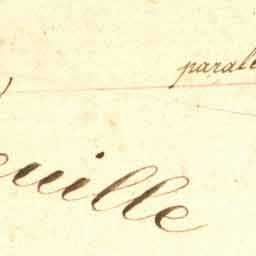 paralle
euille